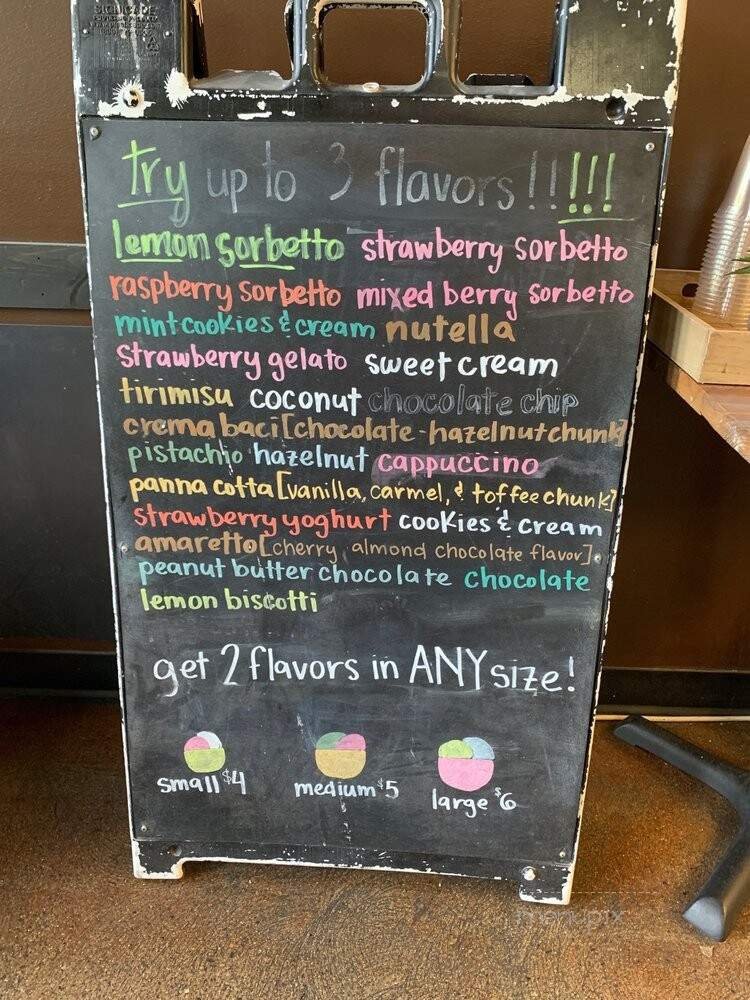 try up to 3 flavors!!!!!
lemon sorbetto strawberry sorbetto
raspberry sorbetto mixed berry sorbetto
mint cookies & cream nutella
strawberry gelato sweet cream
tirimisu coconut chocolate chip
crema baci [chocolate-hazelnut chunk]
pistachio hazelnut cappuccino
panna cotta [vanilla, carmel, & toffee chunk]
strawberry yoghurt cookies & cream
amaretto [cherry, almond chocolate flavor]
peanut butter chocolate chocolate
lemon biscotti
get 2 flavors in ANY size!
small $4 medium $5 large $6
menupix